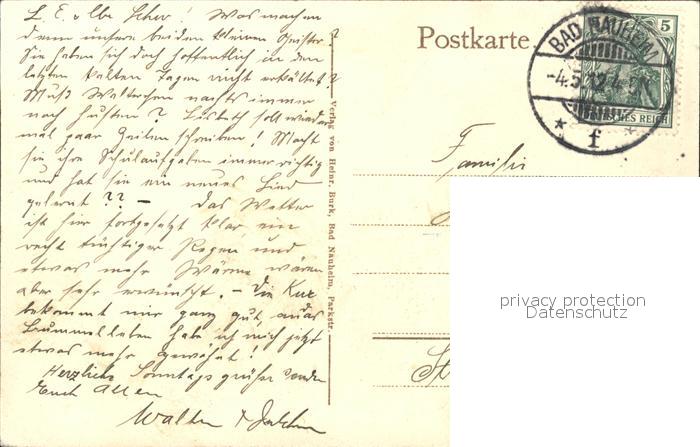 L. E. u lbe Esther! Was machen
denn unsere beiden kleinen Geister?
Sie haben sich doch hoffentlich in den
letzten kalten Tagen nicht erkältet?
Muß Walterchen nachts immer
noch husten? Lisbeth soll wieder
mal paar Zeilen schreiben! Macht
sie ihre Schulaufgaben immer richtig
und hat sie ein neues Lied
gelernt?? — Das Wetter
ist hier fortgesetzt klar, ein
recht tüchtiger Regen und
etwas mehr Wärme wären
aber sehr erwünscht. — Die Kur
bekommt mir ganz gut, an das
Bummelleben habe ich mich jetzt
etwas mehr gewöhnt!
Herzliche Sonntagsgrüße senden
Euch Allen
Walter &
Verlag von Heinr. Burk, Bad Nauheim, Parkstr.
Postkarte.
5
DEUTSCHES REICH
BAD NAUHEIM
-4.5.12.4-5N
* f *
Familie
privacy protection
Datenschutz